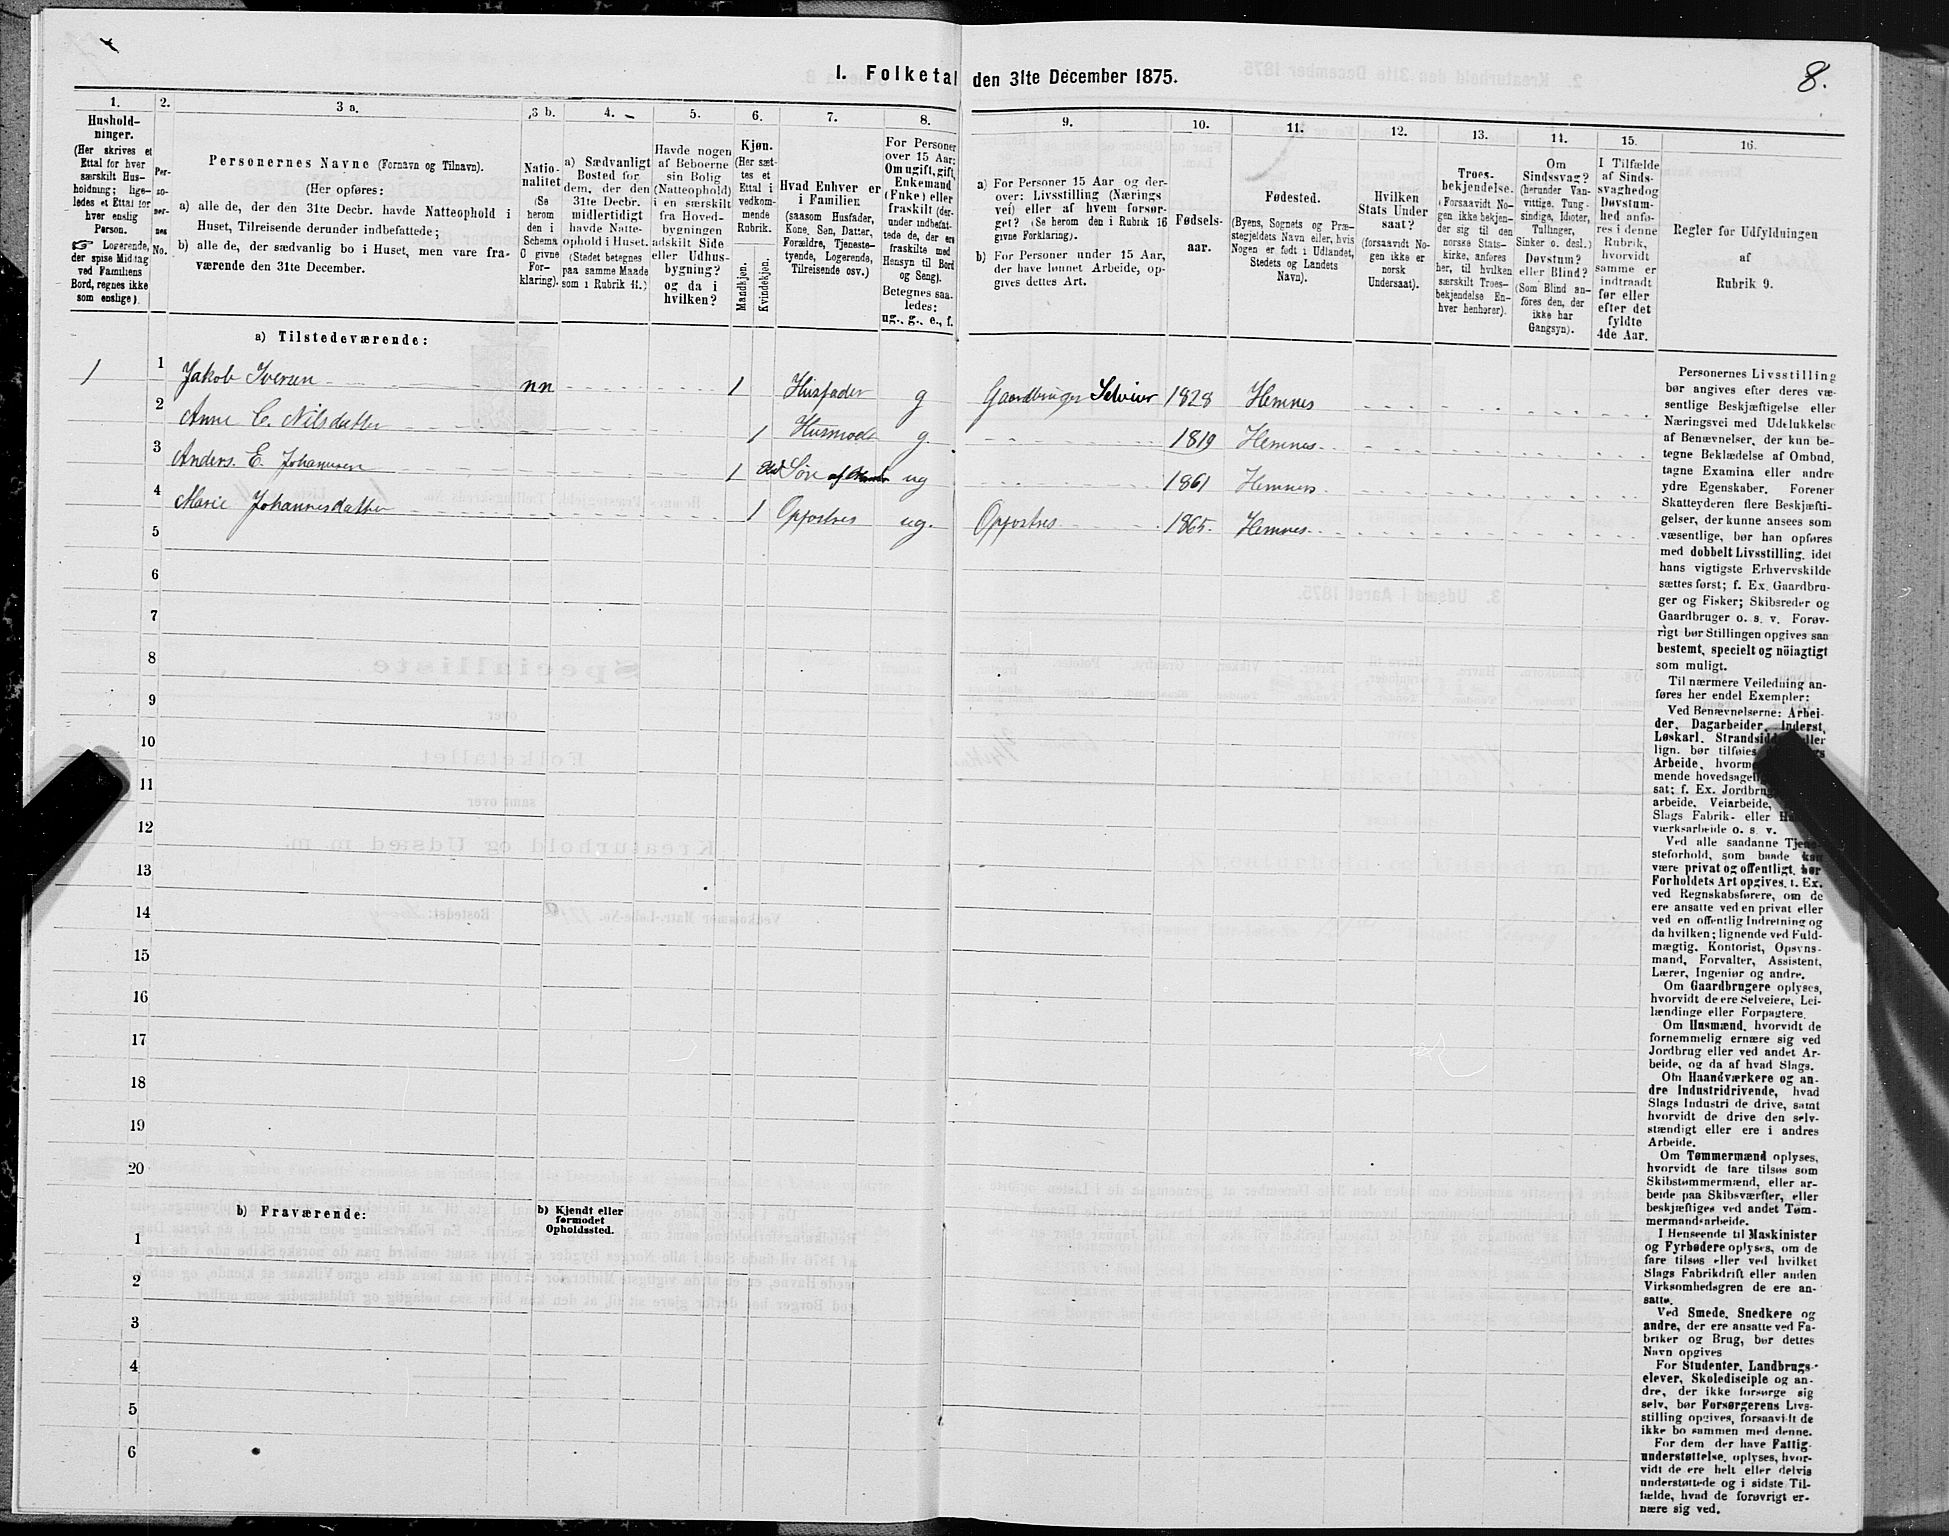 I. Folketal den 31te December 1875.
8.
1.
Hushold-
ninger.
(Her skrives et
Ettal for hver
særskilt Hus-
holdning; lige-
ledes et Ettal for
hver enslig
Person.
☞ Logerende,
der spise Middag
ved Familiens
Bord, regnes ikke
som enslige).
2.
Per-
so-
ner-
nes
No.
3 a.
Personernes Navne (Fornavn og Tilnavn).
(Her opføres:
a) alle de, der den 31te Decbr. havde Natteophold i
Huset, Tilreisende derunder indbefattede;
b) alle de, der sædvanlig bo i Huset, men vare fra-
værende den 31te December.
3 b.
Natio-
nalitet
(Se
herom
den i
Schema
C givne
For-
klaring).
4.
a) Sædvanligt
Bosted for
dem, der den
31te Decbr.
midlertidigt
havde Natte-
ophold i Huset.
(Stedet betegnes
paa samme Maade
som i Rubrik 11.)
5.
Havde nogen
af Beboerne
sin Bolig
(Natteophold)
i en særskilt
fra Hoved-
bygningen
adskilt Side
eller Udhus-
bygning?
og da i
hvilken?
6.
Kjøn.
(Her sæt-
tes et
Ettal i
vedkom-
mende
Rubrik.
Mandkjøn.
Kvindekjøn.
7.
Hvad Enhver er
i Familien
(saasom Husfader,
Kone, Søn, Datter,
Forældre, Tjeneste-
tyende, Logerende,
Tilreisende osv.)
8.
For Personer
over 15 Aar:
Om ugift, gift,
Enkemand
(Enke) eller
fraskilt (der-
under indbefat-
tede de, der ere
fraskilte med
Hensyn til Bord
og Seng).
Betegnes saa-
ledes:
ug., g., e., f.
9.
a) For Personer 15 Aar og der-
over: Livsstilling (Nærings
vei) eller af hvem forsør-
get? (Se herom den i Rubrik 16
givne Forklaring).
b) For Personer under 15 Aar,
der have lønnet Arbeide, op-
gives dettes Art.
10.
Fødsels-
aar.
11.
Fødested.
(Byens, Sognets og Præ-
stegjeldets Navn eller, hvis
Nogen er født i Udlandet,
Stedets og Landets
Navn).
12.
Hvilken
Stats Under
saat?
(forsaavidt No-
gen ikke er
norsk
Undersaat).
13.
Troes-
bekjendelse.
(Forsaavidt No-
gen ikke bekjen-
der sig til den
norske Stats-
kirke, anføres
her, til hvilken
særskilt Troes-
bekjendelse En-
hver henhører).
14.
Om
Sindssvag?
(herunder Van-
vittige, Tung-
sindige, Idioter,
Tullinger,
Sinker o. desl.)
Døvstum?
eller Blind?
(Som Blind an-
føres den, der
ikke har
Gangsyn).
15.
I Tilfælde
af Sinds-
svaghed og
Døvstum-
hed anfø-
res i denne
Rubrik,
hvorvidt
samme er
indtraadt
før eller
efter det
fyldte
4de Aar.
16.
Regler for Udfyldningen
af
Rubrik 9.
a) Tilstedeværende:
1 1 Jakob Iversen nn 1 Husfader g Gaardbruger Selveier 1828 Hemnes
2 Anne C. Nilsdatter 1 Husmoder g 1819 Hemnes
3 Anders. E. Johannesen 1 Søn ug 1861 Hemnes
4 Marie Johannesdatter 1 Opfostres ug. Opfostres 1865. Hemnes
5
6
7
8
9
10
11
12
13
14
15
16
17
18
19
20
b) Fraværende:
b) Kjendt eller
formodet
Opholdssted.
1
2
3
4
5
6
Personernes Livsstilling
bør angives efter deres væ-
sentlige Beskjæftigelse eller
Næringsvei med Udelukkelse
af Benævnelser, der kun be-
tegne Beklædelse af Ombud,
tagne Examina eller andre
ydre Egenskaber. Forener
Skatteyderen flere Beskjæfti-
gelser, der kunne ansees som
væsentlige, bør han opføres
med dobbelt Livsstilling, idet
hans vigtigste Erhvervskilde
sættes først; f. Ex. Gaardbru-
ger og Fisker; Skibsreder og
Gaardbruger o. s. v. Forøv-
rigt bør Stillingen opgives saa
bestemt, specielt og nöiagtigt
som muligt.
Til nærmere Veiledning an-
føres her endel Exempler:
Ved Benævnelserne: Arbei-
der, Dagarbeider, Inderst,
Løskarl, Strandsidder eller
lign. bør tilføies
Arbeide, hvorme
mende hovedsagel
sat; f. Ex. Jordbrug
arbeide, Veiarbeide,
Slags Fabrik- eller
værksarbeide o. s. v.
Ved alle saadanne Tjene-
steforhold, som baade kan
være privat og offentligt, bør
Forholdets Art opgives, t. Ex.
ved Regnskabsførere, om de
ere ansatte ved en privat eller
ved en offentlig Indretning og
da hvilken; lignende ved Fuld-
mægtig, Kontorist, Opsyns-
mand, Forvalter, Assistent,
Lærer, Ingeniør og andre.
Om Gaardbrugere oplyses,
hvorvidt de ere Selveiere, Lei-
lændinge eller Forpagtere.
Om Husmænd, hvorvidt de
fornemmelig ernære sig ved
Jordbrug eller ved andet Ar-
beide, og da af hvad Slags.
Om Haandværkere og an-
dre Industridrivende, hvad
Slags Industri de drive, samt
hvorvidt de drive den selv-
stændigt eller ere i andres
Arbeide.
Om Tømmermænd oplyses,
hvorvidt de fare tilsøs som
Skibstømmermænd, eller ar-
beide paa Skibsværfter, eller
beskjæftiges ved andet Tøm-
mermandsarbeide.
I Henseende til Maskinister
og Fyrbødere oplyses, om de
fare tilsøs eller ved hvilket
Slags Fabrikdrift eller anden
Virksomhedsgren de ere an-
satte.
Ved Smede, Snedkere og
andre, der ere ansatte ved Fa-
briker og Brug, bør dettes
Navn opgives
For Studenter, Landbrugs-
elever, Skoledisciple og an-
dre, der ikke forsørge sig
selv, bør Forsørgerens Livs-
stilling opgives, forsaavidt de
ikke bo sammen med denne.
For dem der have Fattig-
understøttelse, oplyses, hvor-
vidt de ere helt eller delvis
understøttede og i sidste Til-
fælde, hvad de forøvrigt er-
nære sig ved.